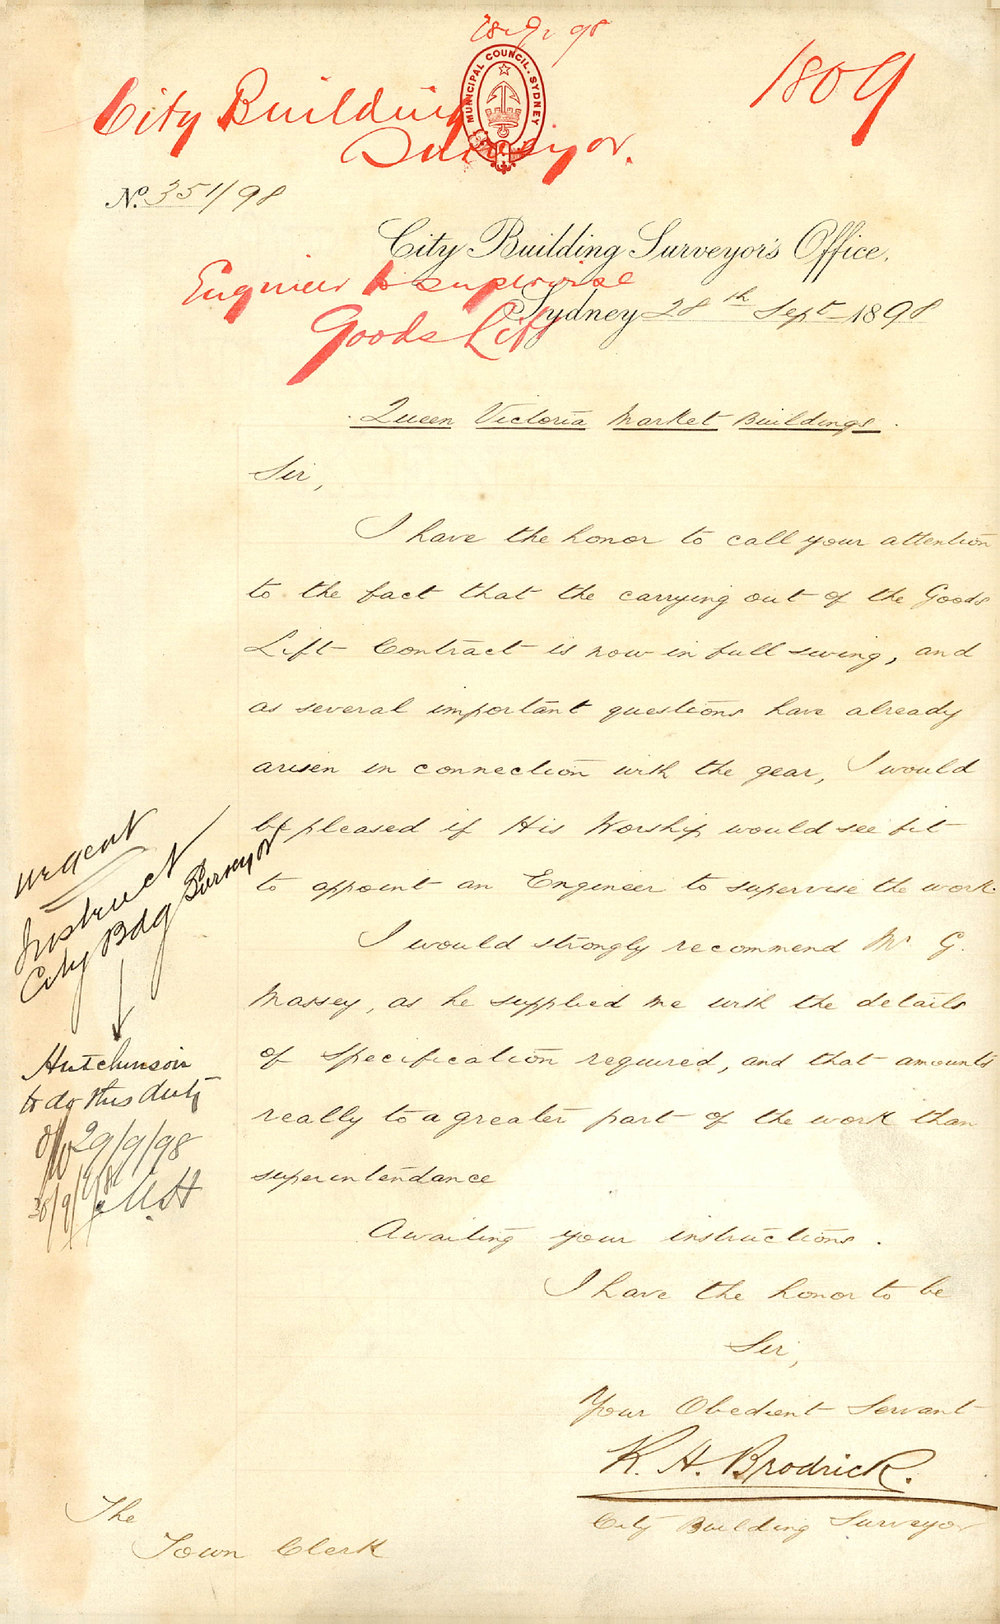 28.9.98
1809
City Building
Surveyor.
MUNICIPAL COUNCIL. SYDNEY
No. 351/98
City Building Surveyor's Office,
Engineer to supervise
Goods Lift
Sydney 28th Sept 1898
Queen Victoria Market Buildings.
Sir,
I have the honor to call your attention
to the fact that the carrying out of the Goods
Lift Contract is now in full swing, and
as several important questions have already
arisen in connection with the gear, I would
be pleased if His Worship would see fit
to appoint an Engineer to supervise the work.
I would strongly recommend Mr G.
Massey, as he supplied me with the details
of specification required, and that amounts
really to a greater part of the work than
superintendance
Awaiting your instructions.
I have the honor to be
Sir,
Your Obedient Servant
R. H. Brodrick.
City Building Surveyor
The
Town Clerk
Urgent
Instruct
City Bdg Surveyor
Hutchinson
to do this duty
29/9/98